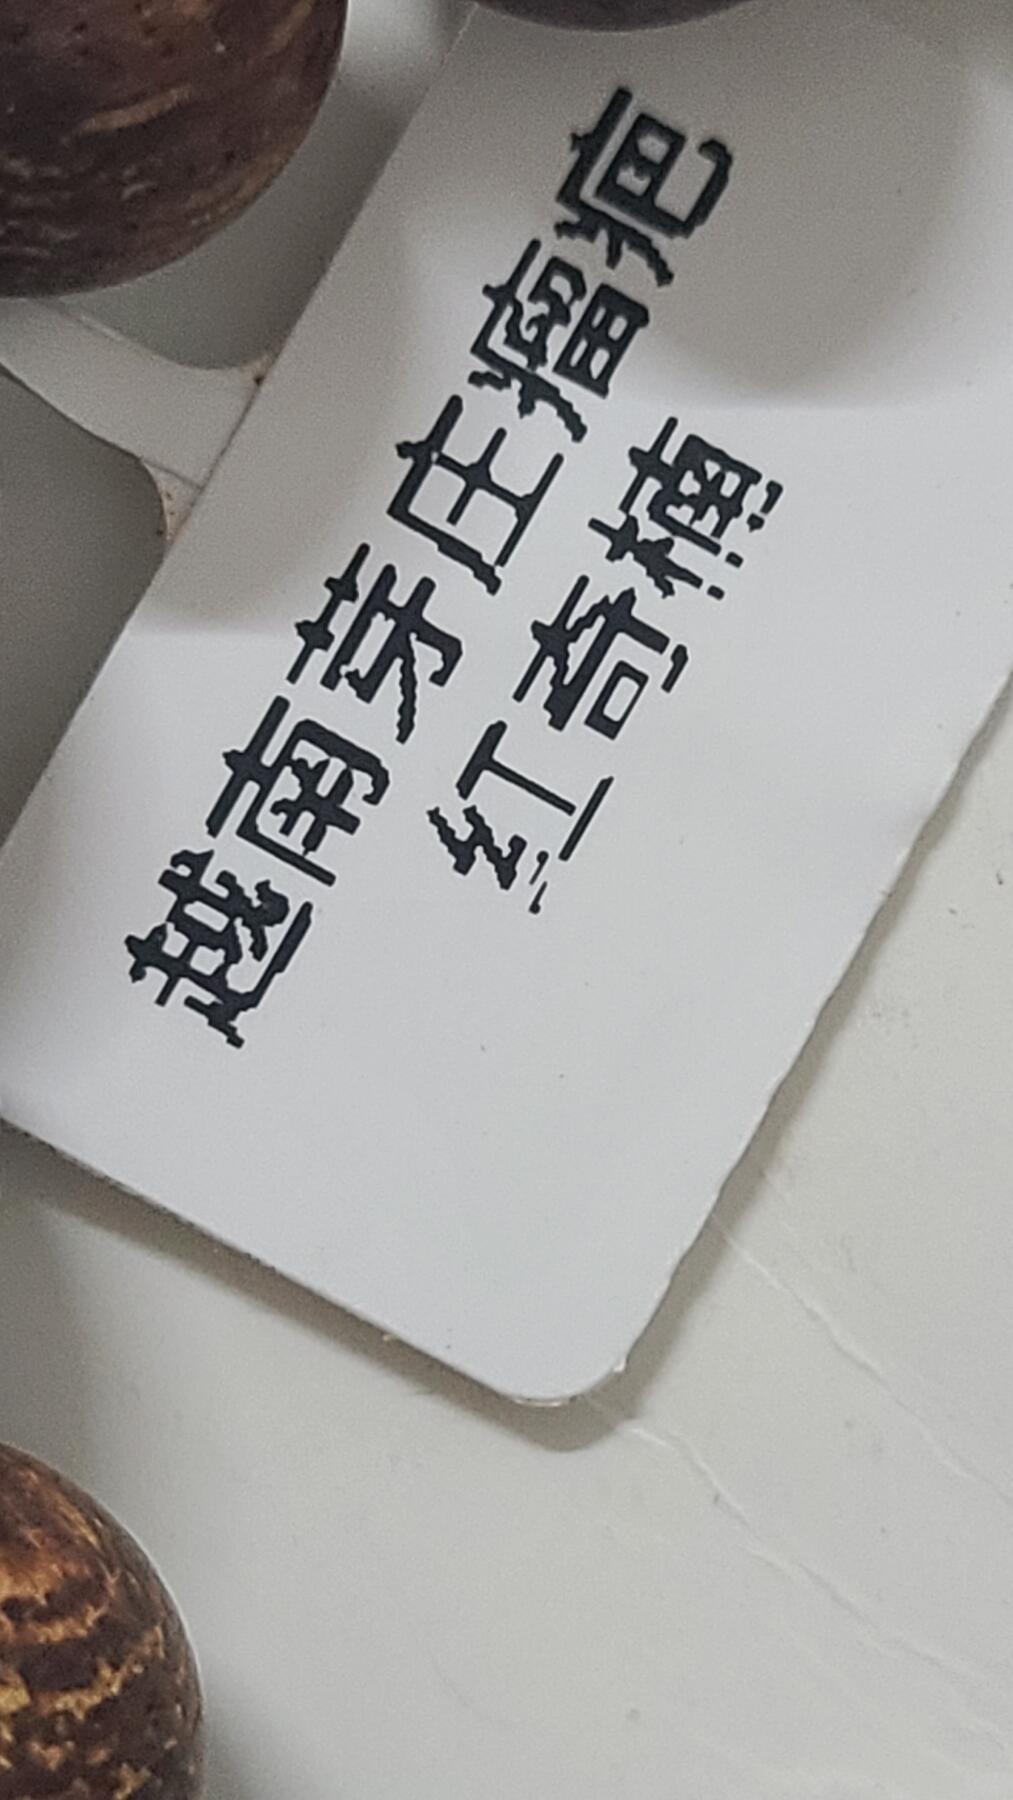 越南芽庄瘤疤
红奇楠